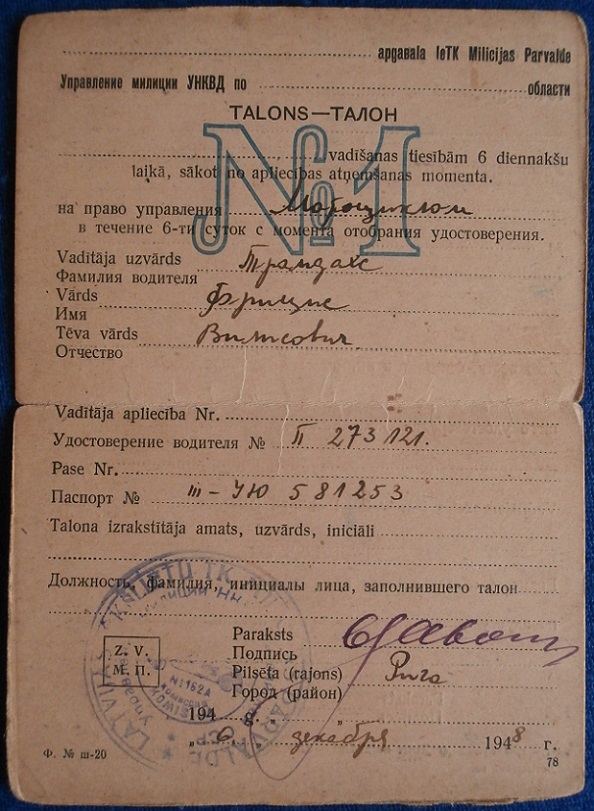 apgabala IeTK Milicijas Parvalde
Управление милиции УНКВД по области
TALONS—ТАЛОН
№1
vadīšanas tiesībām 6 diennakšu
laikā, sākot no apliecības atņemšanas momenta.
на право управления Мотоциклом
в течение 6-ти суток с момента отобрания удостоверения.
Vadītāja uzvārds
Фамилия водителя Трамдахс
Vārds
Имя Фрицис
Tēva vārds
Отчество Вилисович
Vadītāja apliecība Nr.
Удостоверение водителя № П 273121.
Pase Nr.
Паспорт № III-УЮ 581253
Talona izrakstītāja amats, uzvārds, iniciāli
Должность, фамилия, инициалы лица, заполнившего талон
Z. V.
М. П.
Paraksts
Подпись
Pilsēta (rajons)
Город (район) Рига
194 g. „ "
„6„ декабря 1948 г.
Ф. № ш-20
78